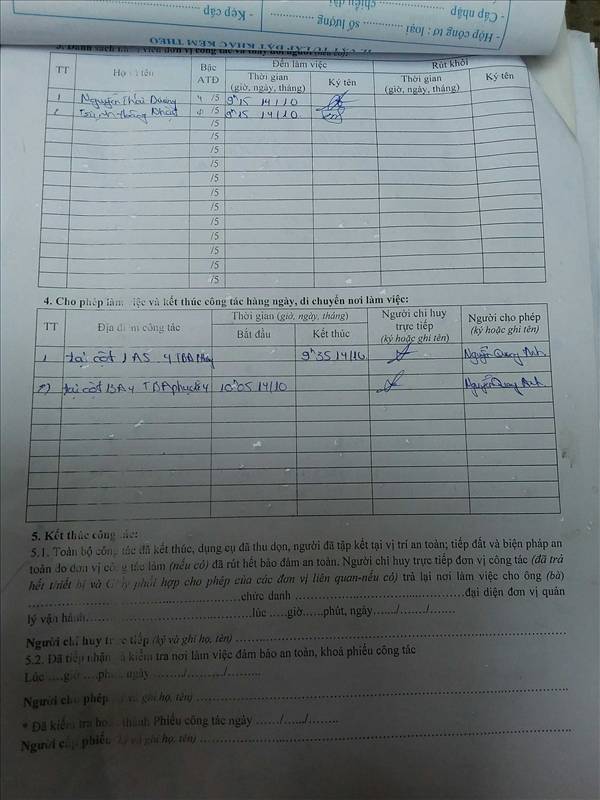 - Hộp công tơ : loại ............ số lượng ............
- Cấp nhập ............ chiếu dài ............
- Kẹp cáp ............
II. VẬT TƯ LẮP ĐẶT KHÁC KÈM THEO
3. Danh sách đơn vị công tác và thay đổi người (nếu có):
TT Họ và tên Bậc ATĐ Đến làm việc Rút khỏi
Thời gian (giờ, ngày, tháng) Ký tên Thời gian (giờ, ngày, tháng) Ký tên
1 Nguyễn Thái Dương 4 /5 9h15 14/10
2 Trịnh Hoàng Nhật 4 /5 9h15 14/10
/5
/5
/5
/5
/5
/5
/5
/5
/5
/5
/5
/5
4. Cho phép làm việc và kết thúc công tác hàng ngày, di chuyển nơi làm việc:
TT Địa điểm công tác Thời gian (giờ, ngày, tháng) Người chỉ huy trực tiếp (ký hoặc ghi tên) Người cho phép (ký hoặc ghi tên)
Bắt đầu Kết thúc
1 tại cột 1A5 - 4 TBA 9h35 14/10 Nguyễn Quang Anh
2) tại cột 13A4 TBA 10h05 14/10 Nguyễn Quang Anh
5. Kết thúc công tác:
5.1. Toàn bộ công tác đã kết thúc, dụng cụ đã thu dọn, người đã tập kết tại vị trí an toàn; tiếp đất và biện pháp an
toàn do đơn vị công tác làm (nếu có) đã rút hết bảo đảm an toàn. Người chỉ huy trực tiếp đơn vị công tác (đã trả
hết thiết bị và Giấy phối hợp cho phép của các đơn vị liên quan-nếu có) trả lại nơi làm việc cho ông (bà)
............chức danh ............đại diện đơn vị quản
lý vận hành............lúc .....giờ......phút, ngày....../....../.......
Người chỉ huy trực tiếp (ký và ghi họ, tên) ............
5.2. Đã tiếp nhận và kiểm tra nơi làm việc đảm bảo an toàn, khoá phiếu công tác
Lúc .....giờ .....phút, ngày ......./......./.........
Người cho phép (ký và ghi họ, tên) ............
* Đã kiểm tra hoàn thành Phiếu công tác ngày ....../....../........
Người cấp phiếu (ký và ghi họ, tên) ............